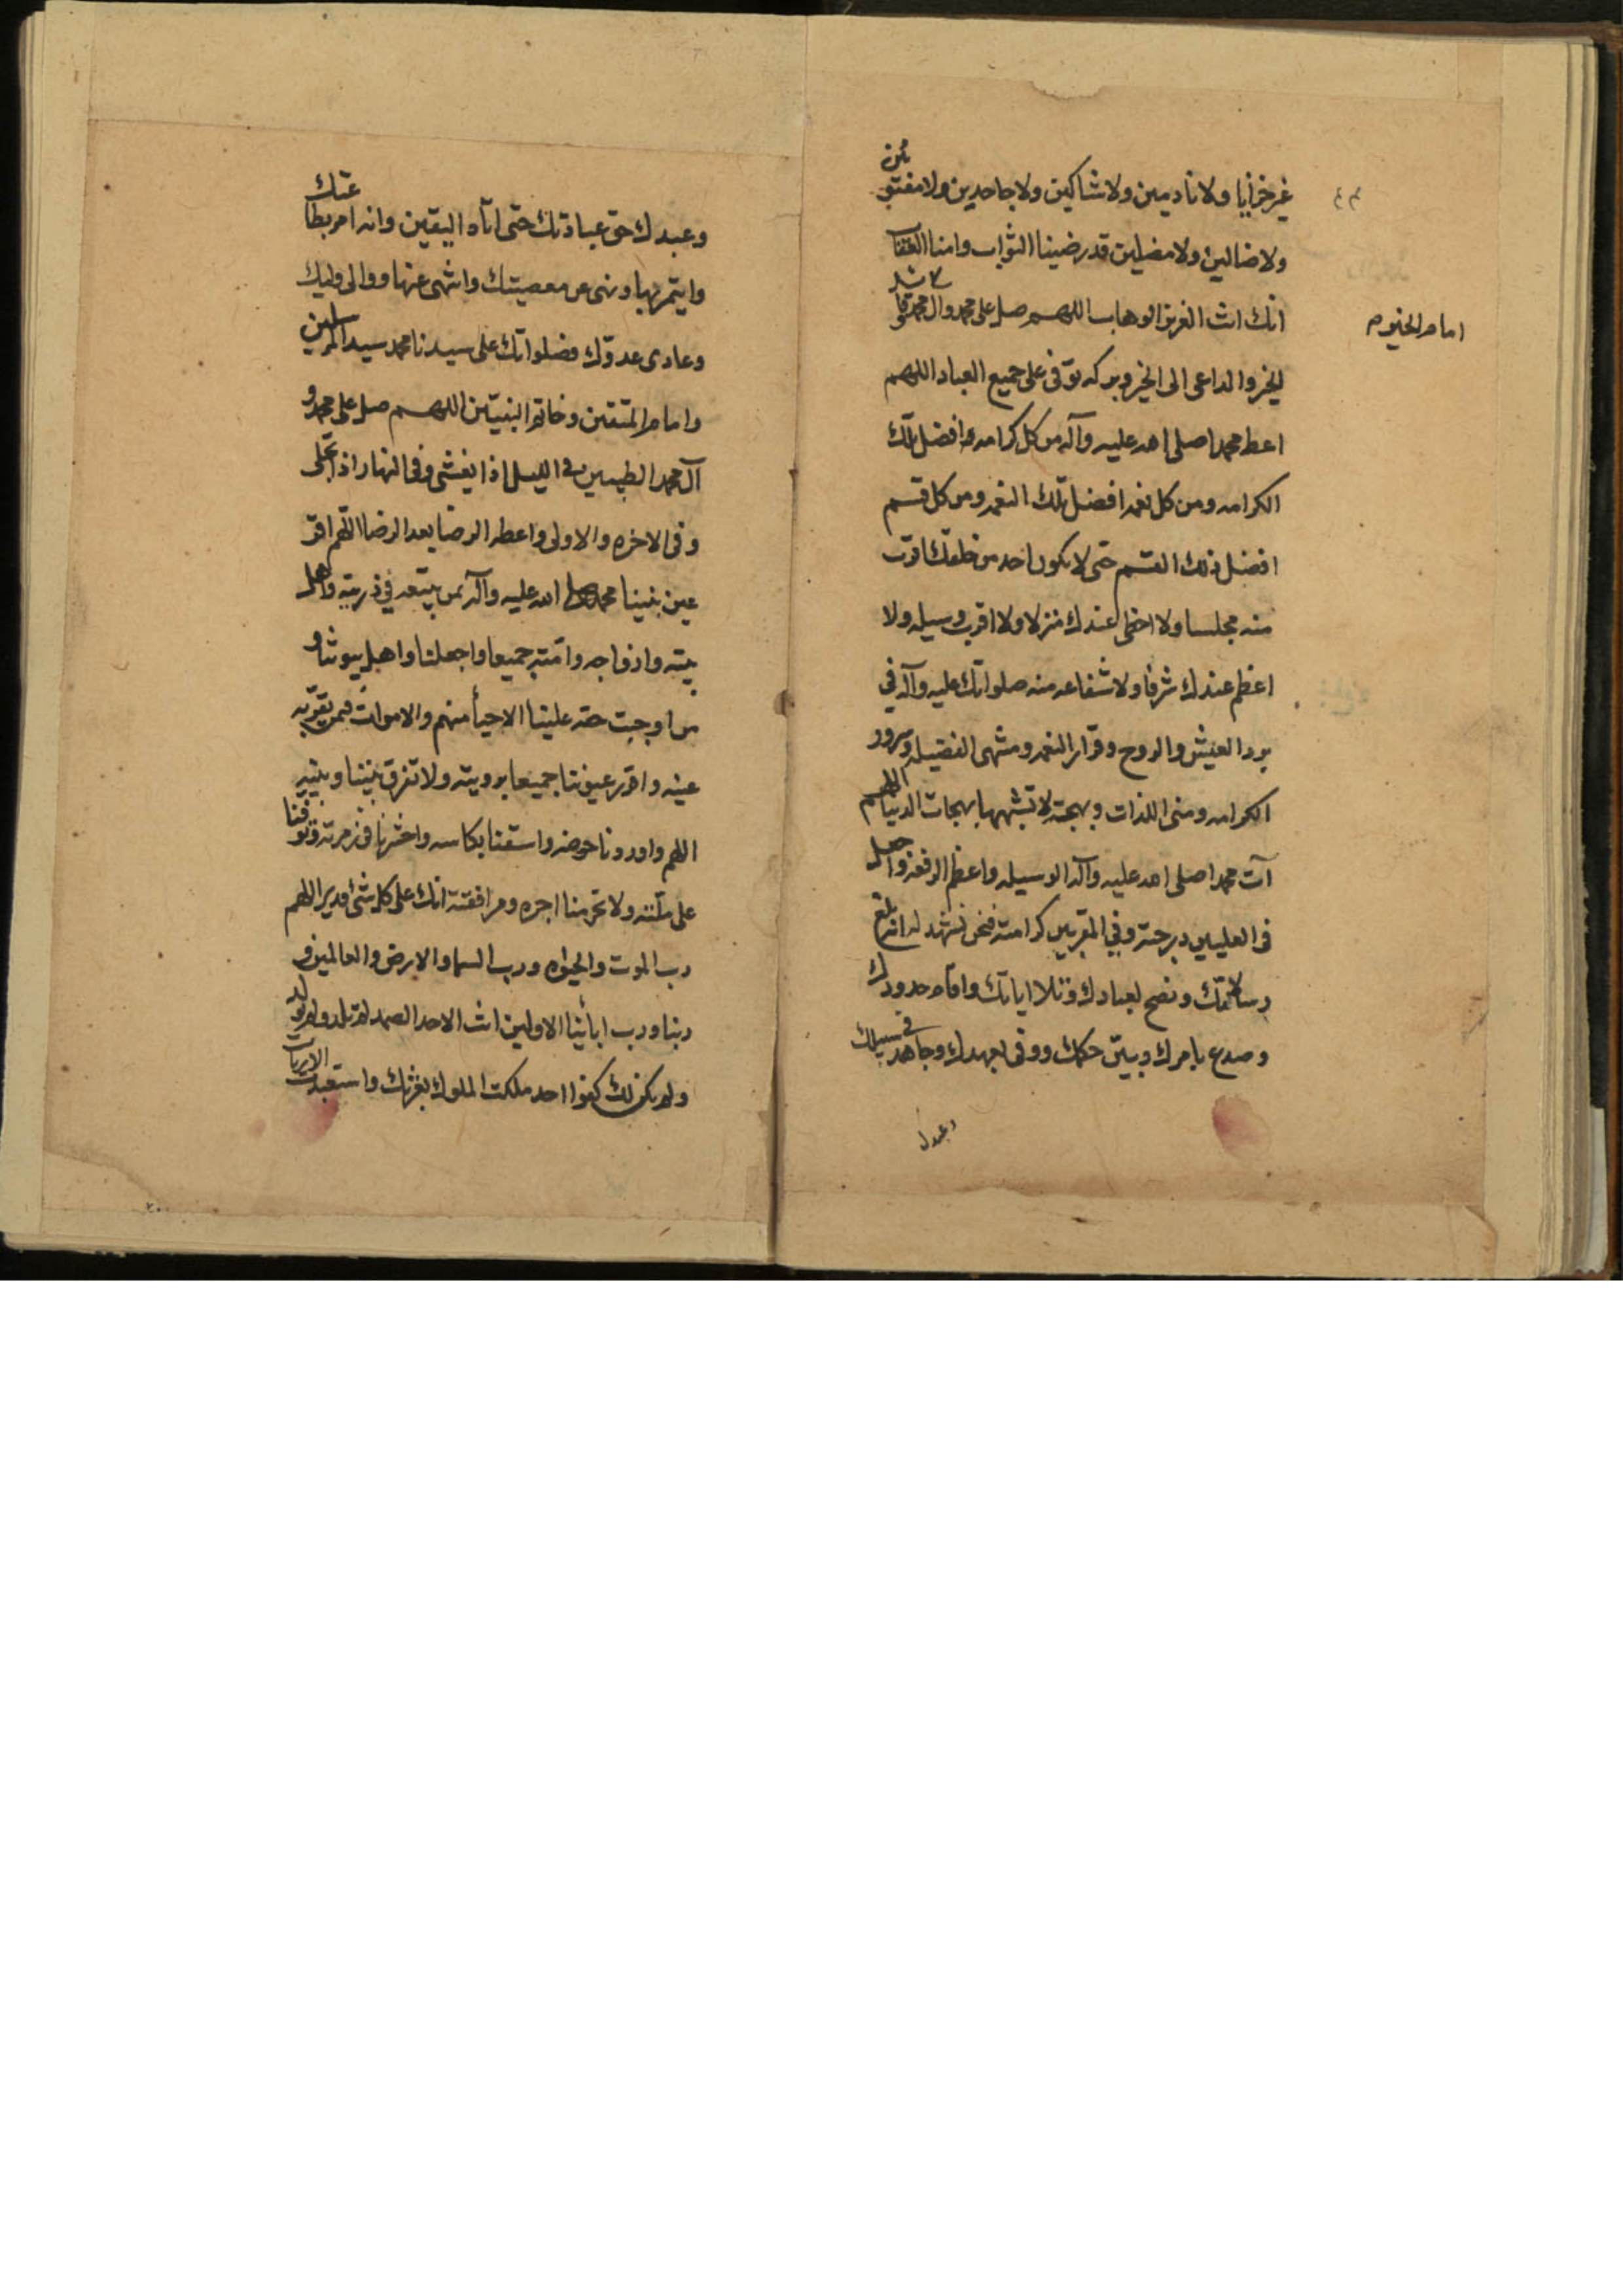 غير خزايا ولا نادمين ولا شاكين ولا جاحدين ولا مفتونين
ولا ضالين ولا مضلين قد رضينا الثواب وامنا العقاب
انك انت العزيز الوهاب اللهم صل على محمد وال محمد قائد
امام الخير
الخير والداعي الى الخير وبركة توفى على جميع العباد اللهم
اعط محمدا صلى الله عليه وآله من كل كرامه افضل تلك
الكرامه ومن كل نعمه افضل تلك النعمه ومن كل قسم
افضل ذلك القسم حتى لا يكون احد من خلقك اقرب
منه مجلسا ولا احظى عندك منزلا ولا اقرب وسيله ولا
اعظم عندك شرفا ولا شفاعه منه صلواتك عليه وآله في
برد العيش والروح وقرار النعمه ومنتهى الفضيله وسرور
الكرامه ومنى اللذات وبهجة لا تشبهها بهجات الدنيا اللهم
آت محمدا صلى الله عليه وآله الوسيله واعظم الرفعه واجعل
في العليين درجته وفي المقربين كرامته فنحن نشهد له انه بلغ
رسالاتك ونصح لعبادك وتلا اياتك واقام حدودك
وصدع بامرك وبين حكمك ووفى بعهدك وجاهد في سبيلك
وعبدك
وعبدك حق عبادتك حتى اتاه اليقين وانه امر بطاعتك
وايتمر بها ونهى عن معصيتك وانتهى عنها ووالى وليك
وعادى عدوك فصلواتك على سيدنا محمد سيد المرسلين
وامام المتقين وخاتم النبيين اللهم صل على محمد و
آل محمد الطيبين في الليل اذا يغشى وفي النهار اذا تجلى
وفي الاخره والاولى واعطه الرضا بعد الرضا اللهم اقر
عين نبينا محمد صلى الله عليه وآله بمن يتبعه في ذريته واهل
بيته وازواجه وامته جميعا واجعلنا واهل بيوتنا و
من اوجبت حقه علينا الاحياء منهم والاموات فيمن تقر به
عينه واقرر عيوننا جميعا برويته ولا تفرق بيننا وبينه
اللهم واوردنا حوضه واسقنا بكاسه واحشرنا في زمرته وتوفنا
على ملته ولا تحرمنا اجره ومرافقته انك على كل شئ قدير اللهم
رب الموت والحيوه ورب السماء والارض والعالمين و
ربنا ورب ابائنا الاولين انت الاحد الصمد لم تلد ولم تولد
ولم يكن لك كفوا احد ملكت الملوك بعزتك واستعبدت الارباب